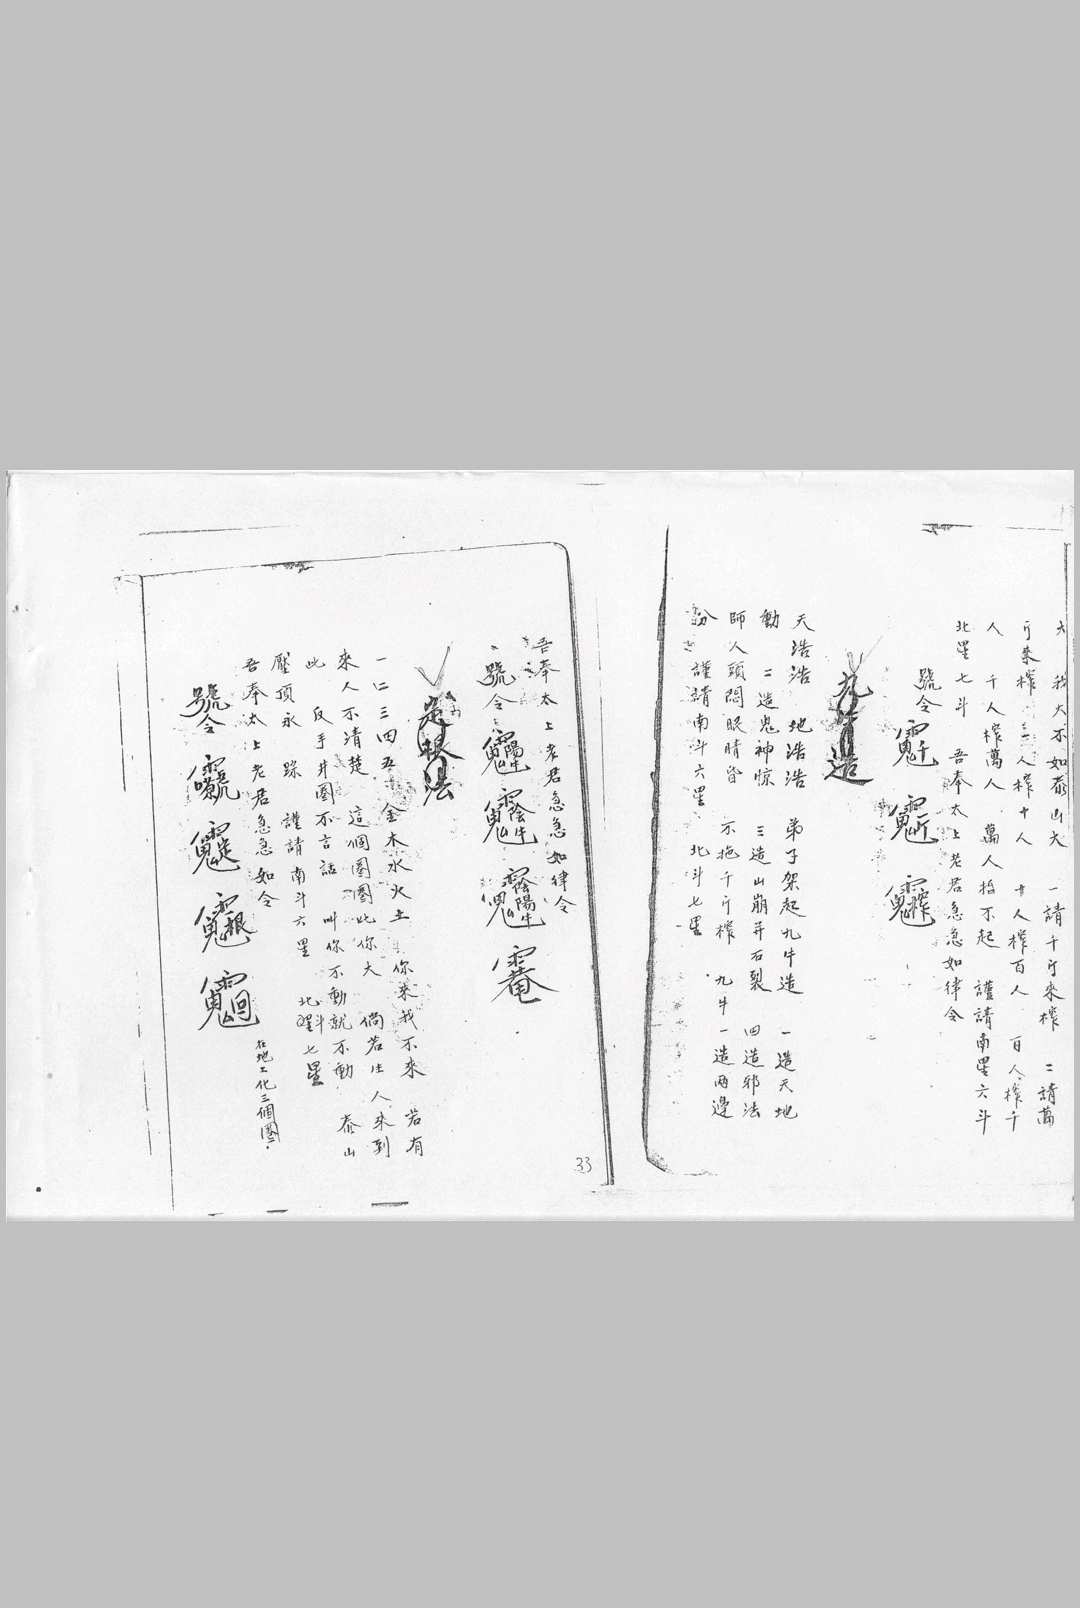 大 我大不如泰山大 一請千斤來榨 二請萬
斤來榨 三人榨十人 十人榨百人 百人榨千
人 千人榨萬人 萬人抬不起 謹請南星六斗
北星七斗 吾奉太上老君急急如律令
號令
九牛造
天浩浩 地浩浩 弟子架起九牛造 一造天地
動 二造鬼神惊 三造山崩并石裂 四造邪法
師人頭悶眼睛昏 不拖千斤榨 九牛一造兩邊
分 謹請南斗六星 北斗七星
吾奉太上老君急急如律令
號令
定根法
一二三四五 金木水火土 你來我不來 若有
來人不清楚 這個圈圈比你大 倘若生人來到
此 反手井圈不言話 叫你不動就不動 泰山
壓頂永 跺 謹請南斗六星 北斗七星
吾奉太上老君急急如令
號令
在地上化三個圈
33